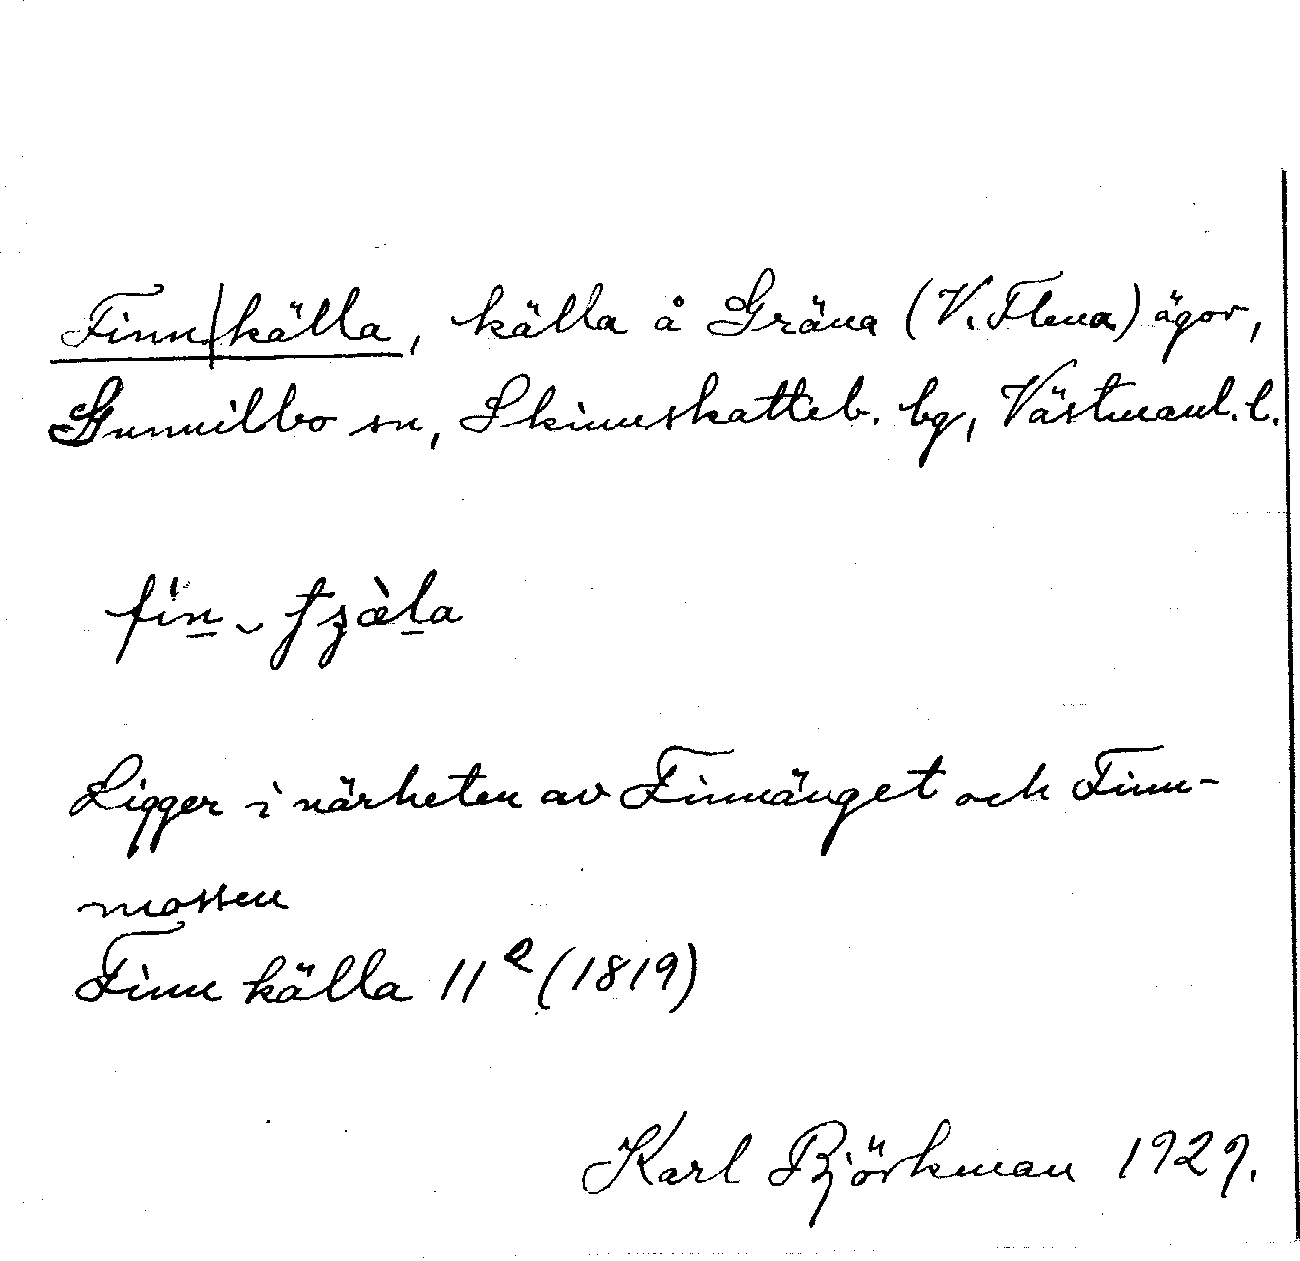 Finn|källa, källa å Gräna (V. Flena) ägor,
Gunnilbo sn, Skinnskatteb. bg, Västmanl. l.
Ligger i närheten av Finnänget och Finn-
mossen
Finn källa 11e (1819)
Karl Björkman 1929.